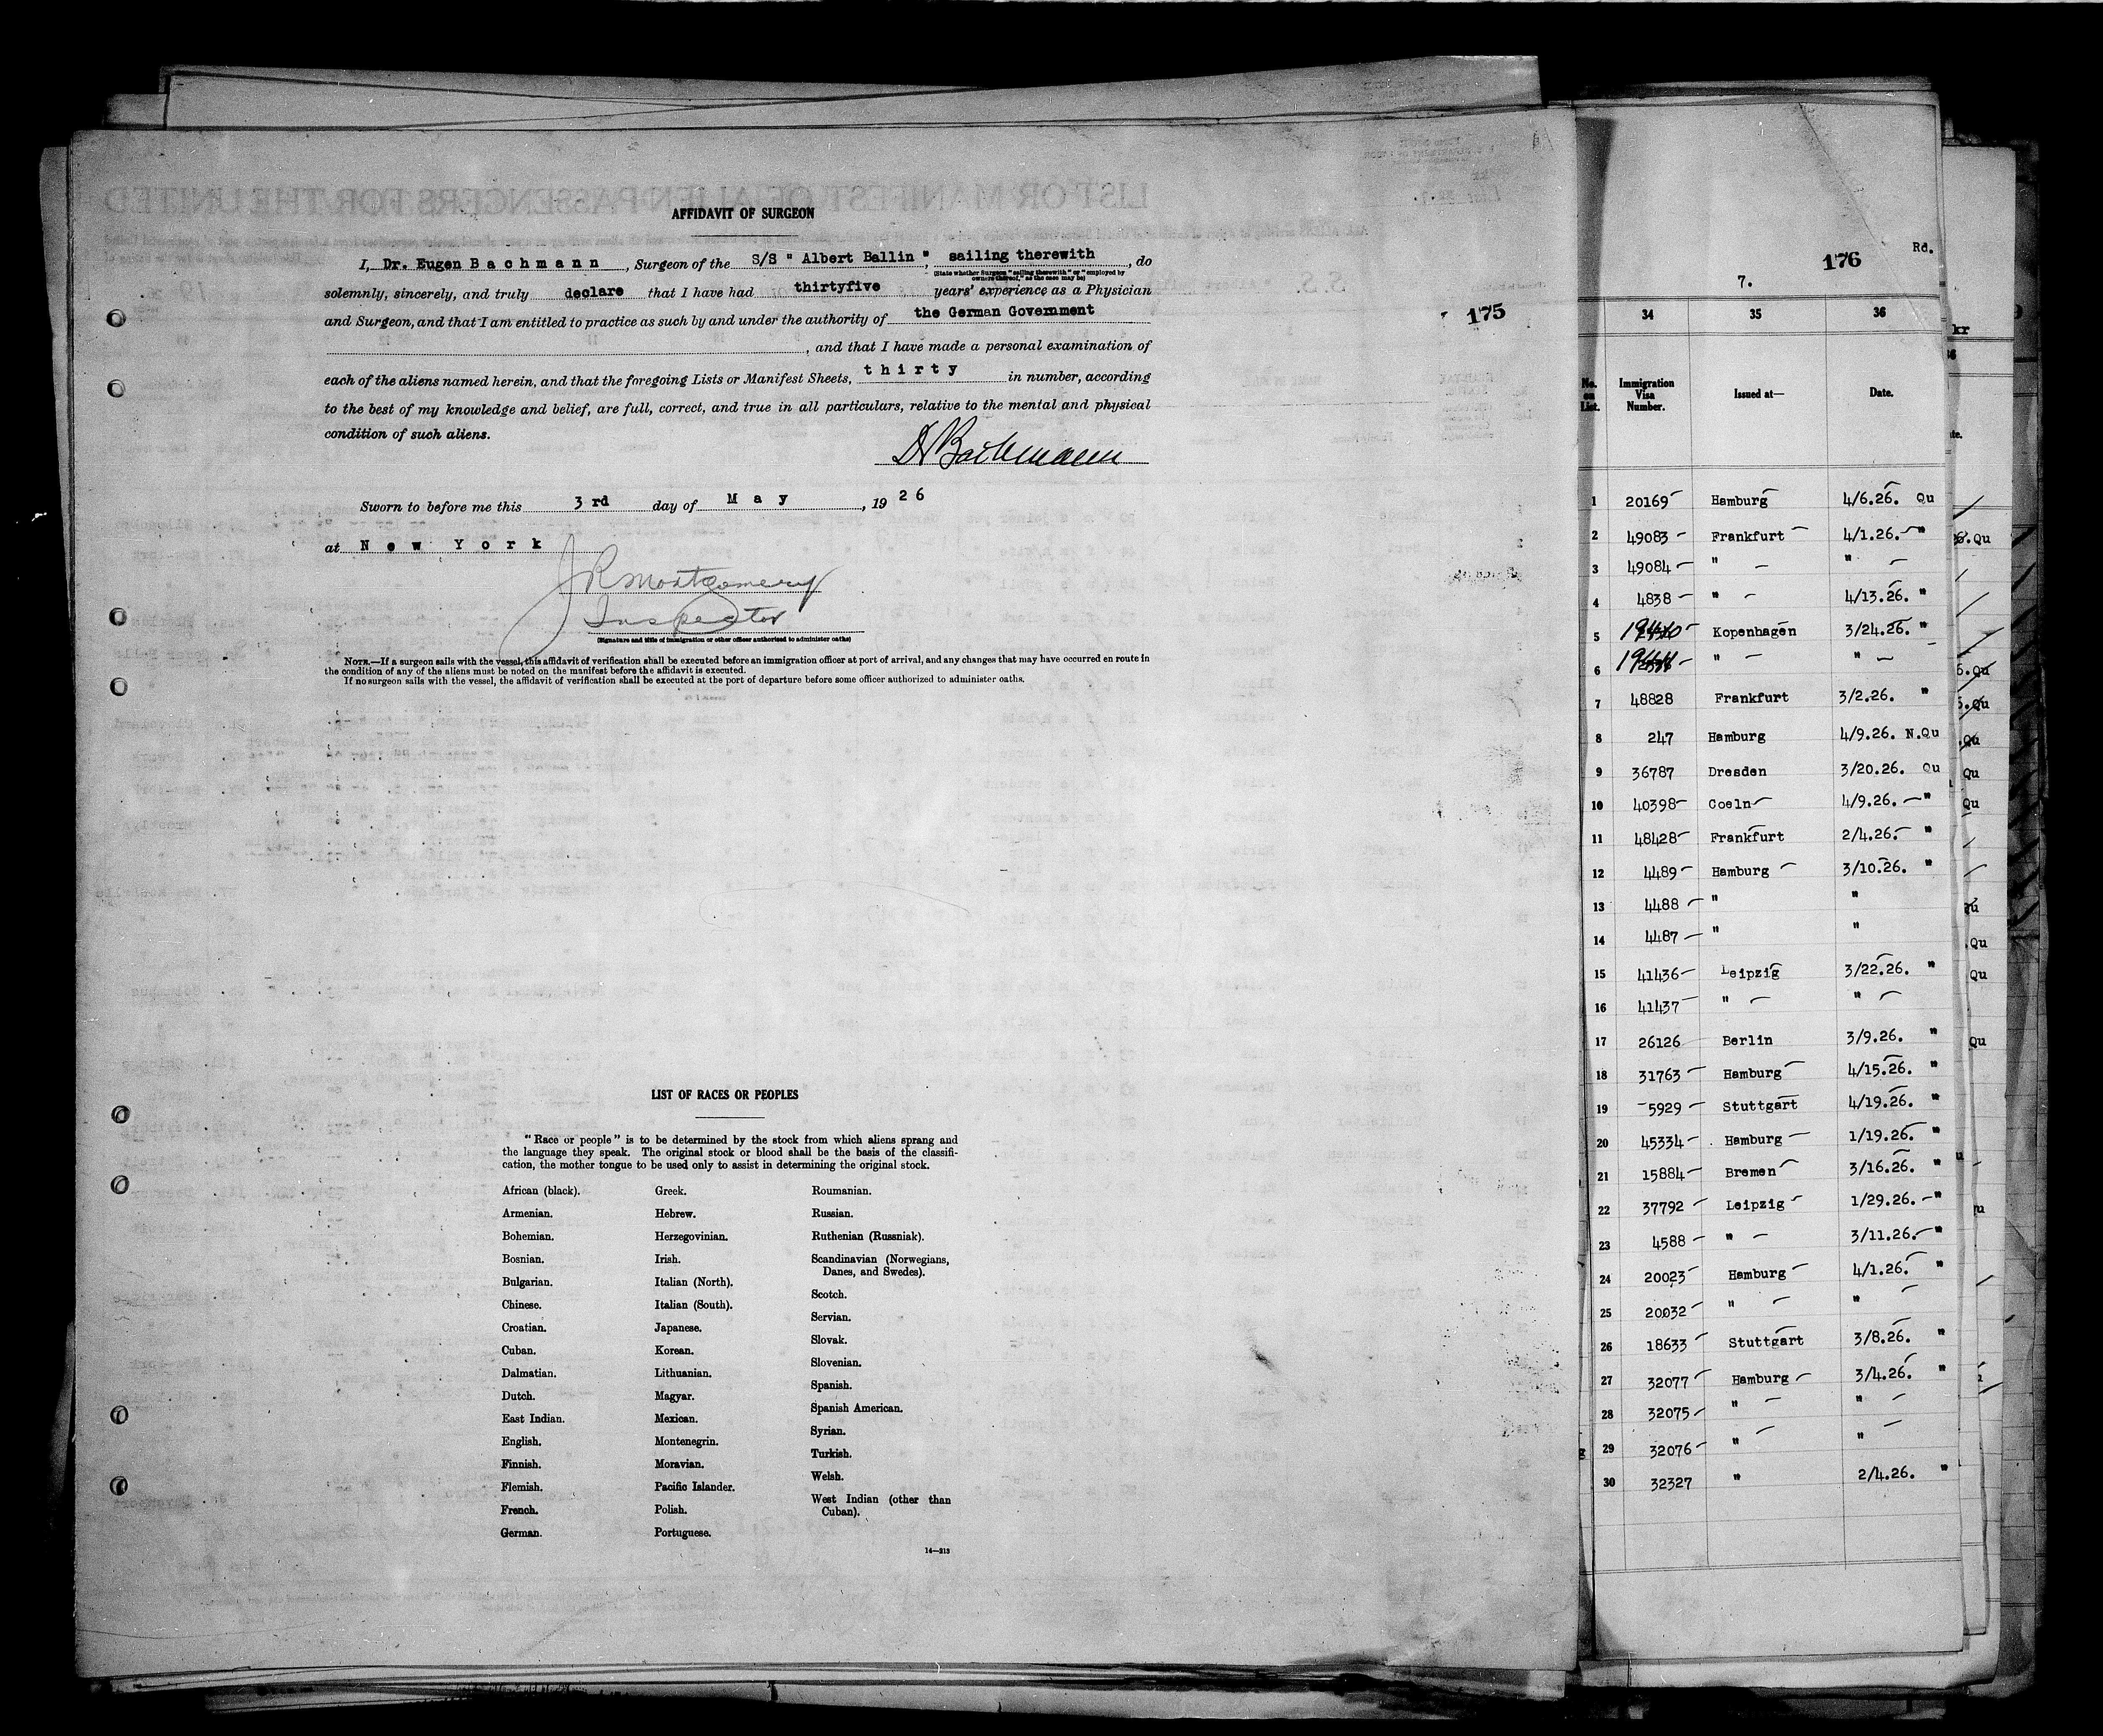 AFFIDAVIT OF SURGEON
I, Dr. Eugen Bachmann, Surgeon of the S/S " Albert Ballin ", sailing therewith, do
(State whether Surgeon "sailing therewith" or "employed by
owners thereof," as the case may be)
solemnly, sincerely, and truly declare that I have had thirtyfive years' experience as a Physician
and Surgeon, and that I am entitled to practice as such by and under the authority of the German Government
, and that I have made a personal examination of
each of the aliens named herein, and that the foregoing Lists or Manifest Sheets, thirty in number, according
to the best of my knowledge and belief, are full, correct, and true in all particulars, relative to the mental and physical
condition of such aliens.
Dr Bachmann
Sworn to before me this 3rd day of May, 1926
at New York
J R Montgomery
Inspector
(Signature and title of immigration or other officer authorized to administer oaths)
NOTE.—If a surgeon sails with the vessel, this affidavit of verification shall be executed before an immigration officer at port of arrival, and any changes that may have occurred en route in
the condition of any of the aliens must be noted on the manifest before the affidavit is executed.
If no surgeon sails with the vessel, the affidavit of verification shall be executed at the port of departure before some officer authorized to administer oaths.
175
LIST OF RACES OR PEOPLES
"Race or people" is to be determined by the stock from which aliens sprang and
the language they speak. The original stock or blood shall be the basis of the classifi-
cation, the mother tongue to be used only to assist in determining the original stock.
African (black).
Armenian.
Bohemian.
Bosnian.
Bulgarian.
Chinese.
Croatian.
Cuban.
Dalmatian.
Dutch.
East Indian.
English.
Finnish.
Flemish.
French.
German.
Greek.
Hebrew.
Herzegovinian.
Irish.
Italian (North).
Italian (South).
Japanese.
Korean.
Lithuanian.
Magyar.
Mexican.
Montenegrin.
Moravian.
Pacific Islander.
Polish.
Portuguese.
Roumanian.
Russian.
Ruthenian (Russniak).
Scandinavian (Norwegians,
Danes, and Swedes).
Scotch.
Servian.
Slovak.
Slovenian.
Spanish.
Spanish American.
Syrian.
Turkish.
Welsh.
West Indian (other than
Cuban).
14—213
Rd.
176
7.
34 35 36
No. on List. Immigration Visa Number. Issued at— Date.
1 20169 Hamburg 4/6.26. Qu
2 49083 Frankfurt 4/1.26. "
3 49084 " "
4 4838 " 4/13.26. "
5 Kopenhagen 3/24.26. "
6 " "
7 48828 Frankfurt 3/2.26. "
8 247 Hamburg 4/9.26. N.Qu
9 36787 Dresden 3/20.26. Qu
10 40398 Coeln 4/9.26. "
11 48428 Frankfurt 2/4.26. "
12 4489 Hamburg 3/10.26. "
13 4488 " "
14 4487 " "
15 41436 Leipzig 3/22.26. "
16 41437 " "
17 26126 Berlin 3/9.26. "
18 31763 Hamburg 4/15.26. "
19 5929 Stuttgart 4/19.26. "
20 45334 Hamburg 1/19.26. "
21 15884 Bremen 3/16.26. "
22 37792 Leipzig 1/29.26. "
23 4588 " 3/11.26. "
24 20023 Hamburg 4/1.26. "
25 20032 " "
26 18633 Stuttgart 3/8.26. "
27 32077 Hamburg 3/4.26. "
28 32075 " "
29 32076 " "
30 32327 " 2/4.26. "